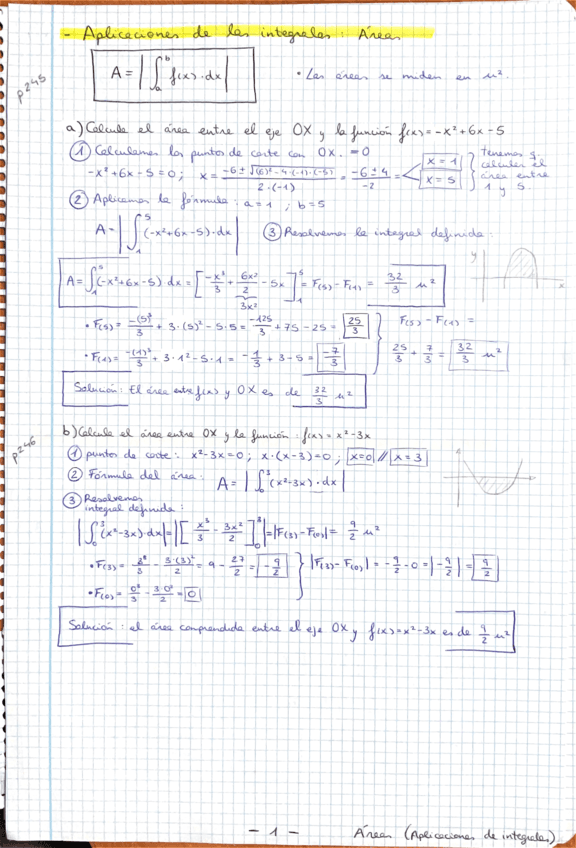 - Aplicaciones de las integrales: Áreas
p245
A = | ∫ₐᵇ f(x)·dx |
• Las áreas se miden en u².
a) Calcula el área entre el eje OX y la función f(x) = -x² + 6x - 5
① Calculamos los puntos de corte con OX. = 0
-x² + 6x - 5 = 0; x = (-6 ± √((6)² - 4·(-1)·(-5))) / (2·(-1)) = (-6 ± 4) / -2 = x = 1 x = 5
tenemos q calcular el área entre 1 y 5.
② Aplicamos la fórmula: a = 1 ; b = 5
A = | ∫₁⁵ (-x² + 6x - 5)·dx |
③ Resolvemos la integral definida:
y
x
A = ∫₁⁵ (-x² + 6x - 5) dx = [ -x³/3 + 6x²/2 - 5x ]₁⁵ = F(5) - F(1) = 32/3 u²
3x²
• F(5) = -(5)³/3 + 3·(5)² - 5·5 = -125/3 + 75 - 25 = 25/3
F(5) - F(1) =
• F(1) = -(1)³/3 + 3·1² - 5·1 = -1/3 + 3 - 5 = -7/3
25/3 + 7/3 = 32/3 u²
Solución: El área entre f(x) y OX es de 32/3 u²
p246
b) Calcula el área entre OX y la función: f(x) = x² - 3x
① puntos de corte: x² - 3x = 0; x·(x-3) = 0; x = 0 // x = 3
② Fórmula del área: A = | ∫₀³ (x² - 3x)·dx |
③ Resolvemos
integral definida:
| ∫₀³ (x² - 3x)·dx | = | [ x³/3 - 3x²/2 ]₀³ | = |F(3) - F(0)| = 9/2 u²
• F(3) = 3³/3 - 3·(3)²/2 = 9 - 27/2 = -9/2
|F(3) - F(0)| = -9/2 - 0 = | -9/2 | = 9/2
• F(0) = 0³/3 - 3·0²/2 = 0
Solución: el área comprendida entre el eje OX y f(x) = x² - 3x es de 9/2 u²
- 1 -
Áreas (Aplicaciones de integrales)